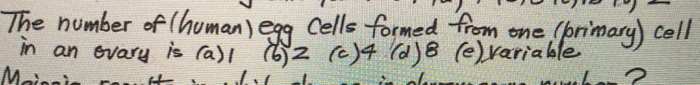 The number of (human) egg Cells formed from one (primary) cell
in an ovary is (a) 1 (b) 2 (c) 4 (d) 8 (e) variable